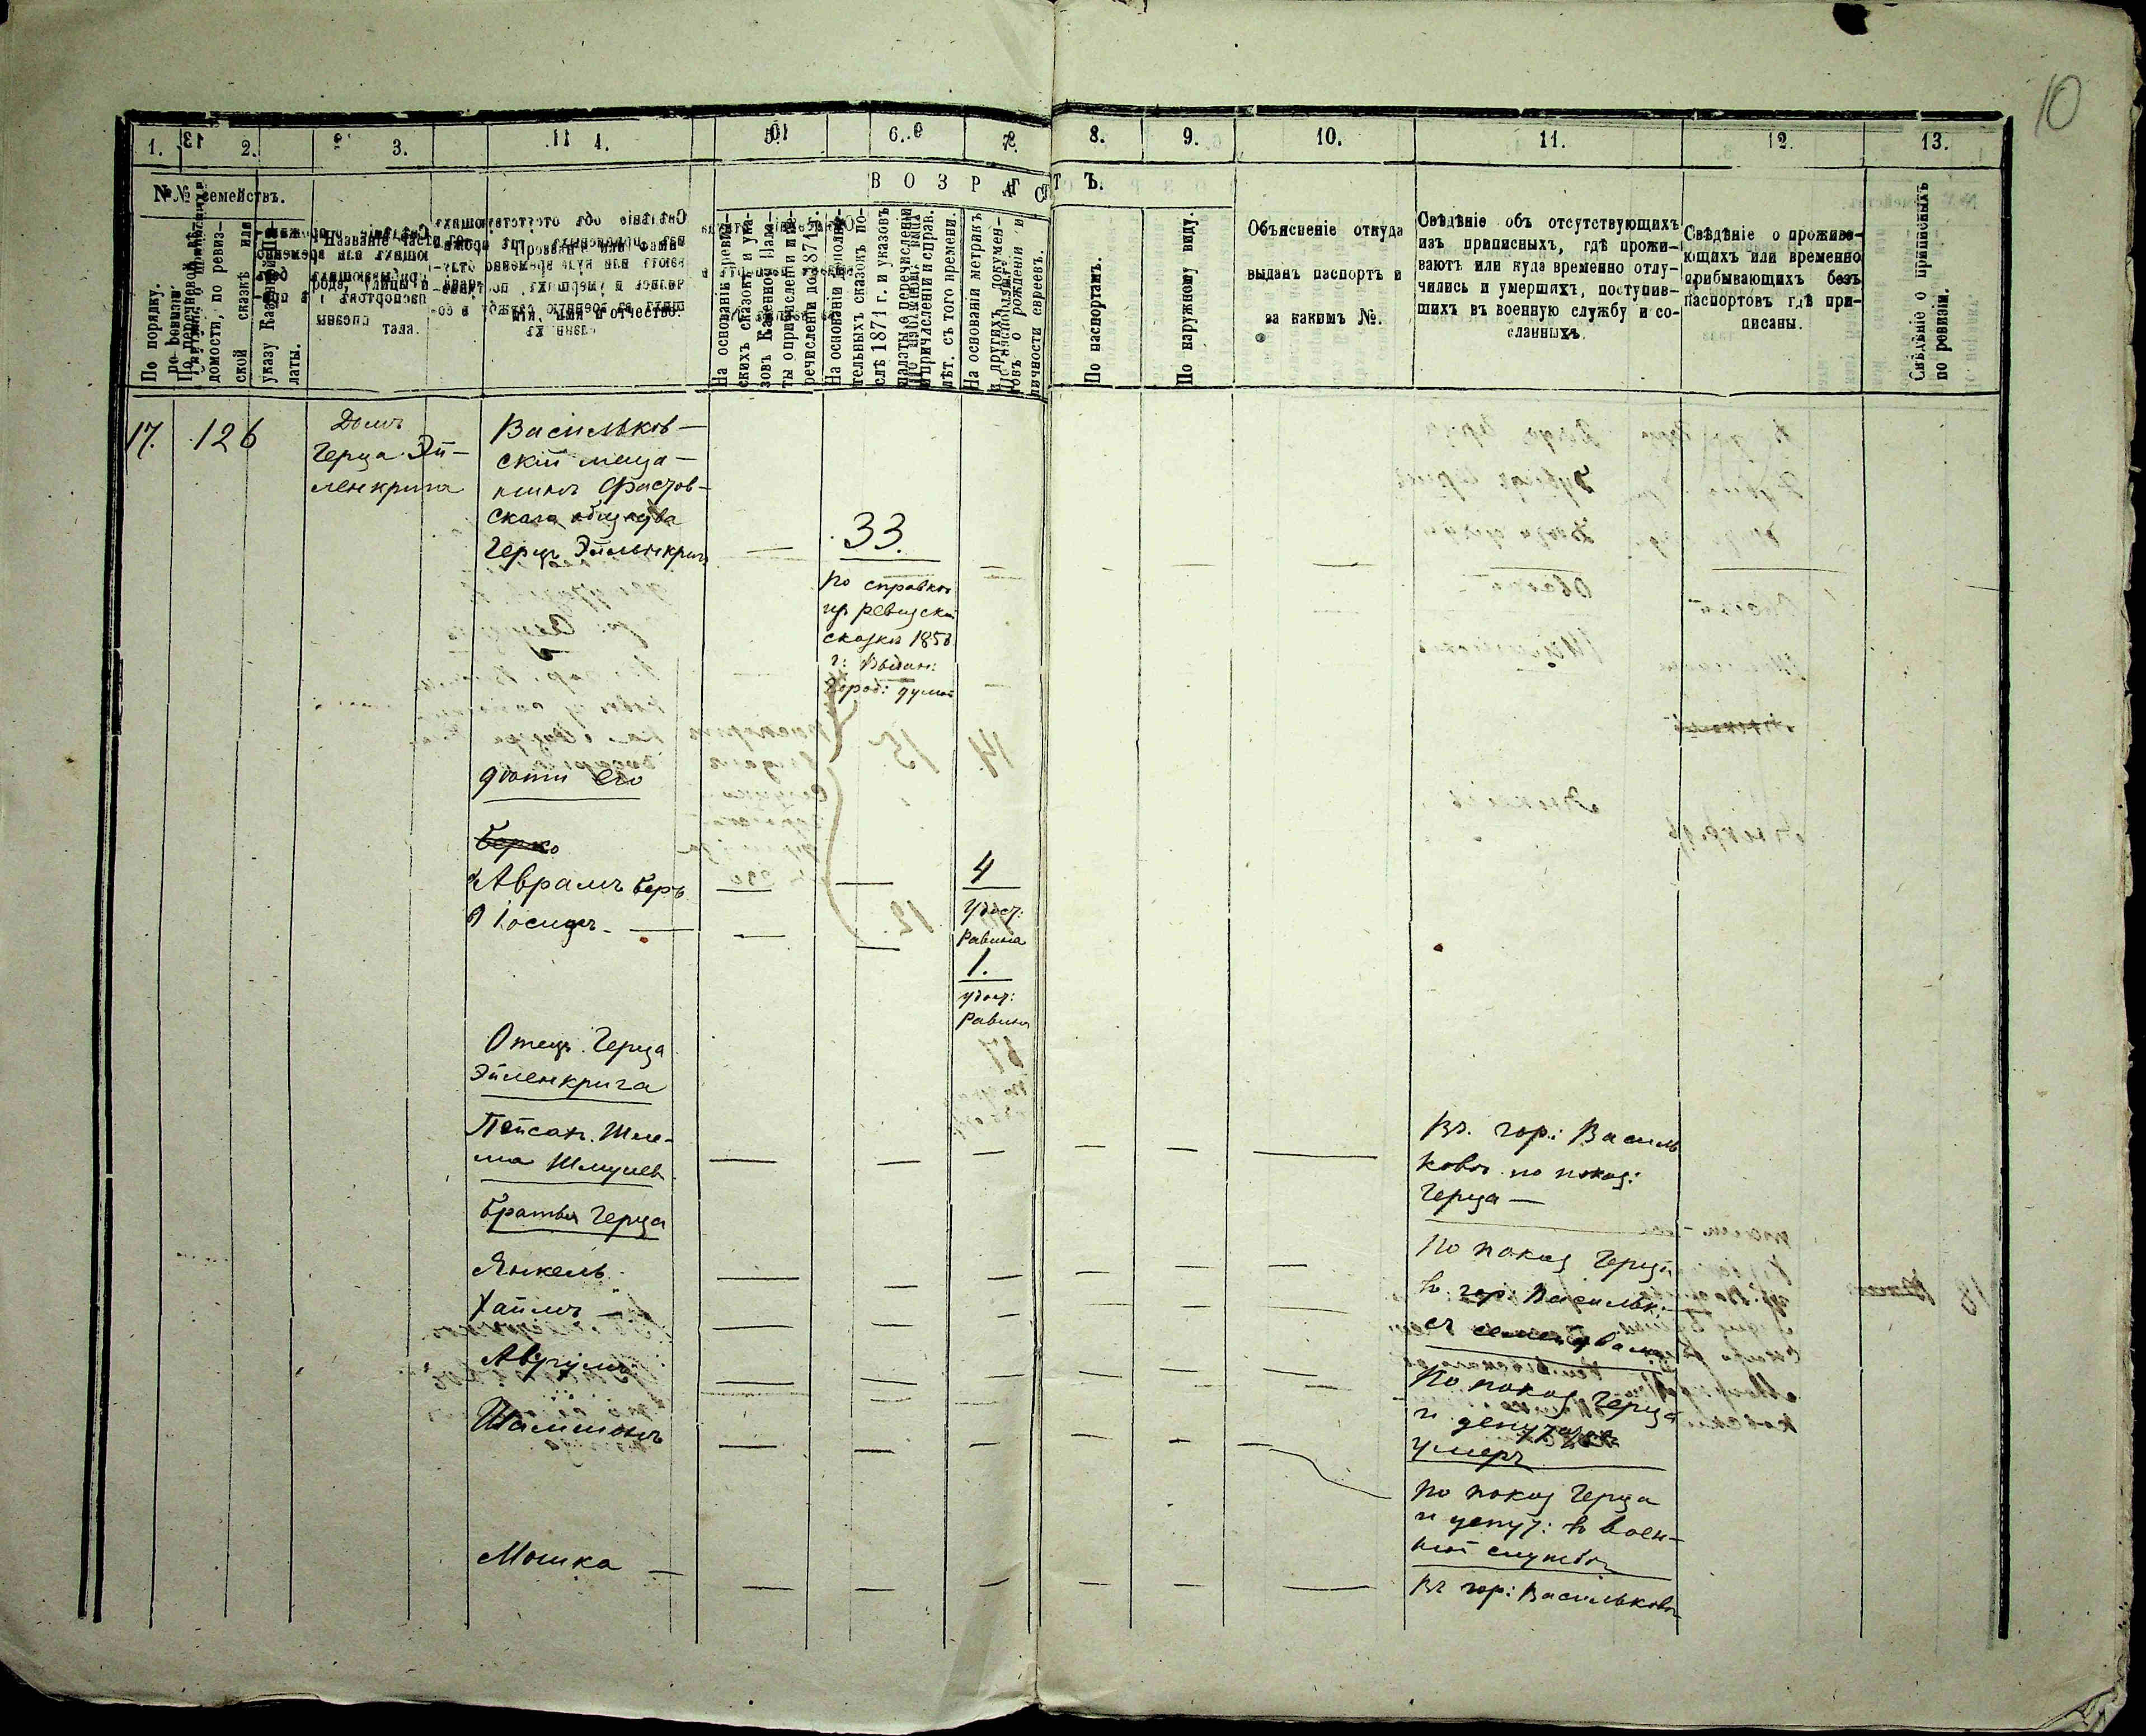 10
1. 2. 3. 4. 5. 6. 7. 8. 9. 10. 11. 12. 13.
№№ семействъ.
По порядку.
домости, по ревиз-
ской сказкѣ или
указу Казенной Па-
латы.
Названіе части
рода, улицы и
тала.
Прозваніе или фами-
лія, имя и отчество.
ВОЗРАСТЪ.
На основаніи ревиз-
скихъ сказокъ и ука-
зовъ Казенной Пала-
ты о причисленіи и пе-
речисленіи до 1871 г.
На основаніи дополни-
тельныхъ сказокъ по-
слѣ 1871 г. и указовъ
палаты о перечисленіи
и причисленіи и справ.
лѣт. съ того времени.
На основаніи метрикъ
и другихъ докумен-
товъ о рожденіи и
личности евреевъ.
По паспортамъ.
По наружному виду.
Объясненіе откуда
выданъ паспортъ и
за какимъ №.
Свѣдѣніе объ отсутствующихъ
изъ приписныхъ, гдѣ прожи-
ваютъ или куда временно отлу-
чились и умершихъ, поступив-
шихъ въ военную службу и со-
сланныхъ.
Свѣдѣніе о прожива-
ющихъ или временно
прибывающихъ безъ
паспортовъ гдѣ при-
писаны.
Свѣдѣніе о приписныхъ
по ревизіи.
17. 126
Домъ
Герца Эй-
ленкрига
Васильков-
скій меща-
нинъ Фастов-
скаго общества
Герцъ Эйленкригъ
33.
по справкѣ
изъ ревизской
сказки 1858
г: Выдан:
Город: думой
дѣти его
Берко
Аврамъ Беръ
4
Удост:
Равина
Іосифъ
1.
удост:
Равина
Отецъ Герца
Эйленкрига
Пейсахъ Шле-
ма Шмулев
Въ гор: Василь
ковѣ по показ:
Герца
Братья Герца
Янкель
Хаимъ
По показ Герца
въ гор: Васильк:
съ семействами
Аврумъ
По показ Герца
и депутатов
умеръ
Шамшонъ
по показ Герца
и депут: въ воен-
ной службѣ
Мошка
Въ гор: Васильковѣ